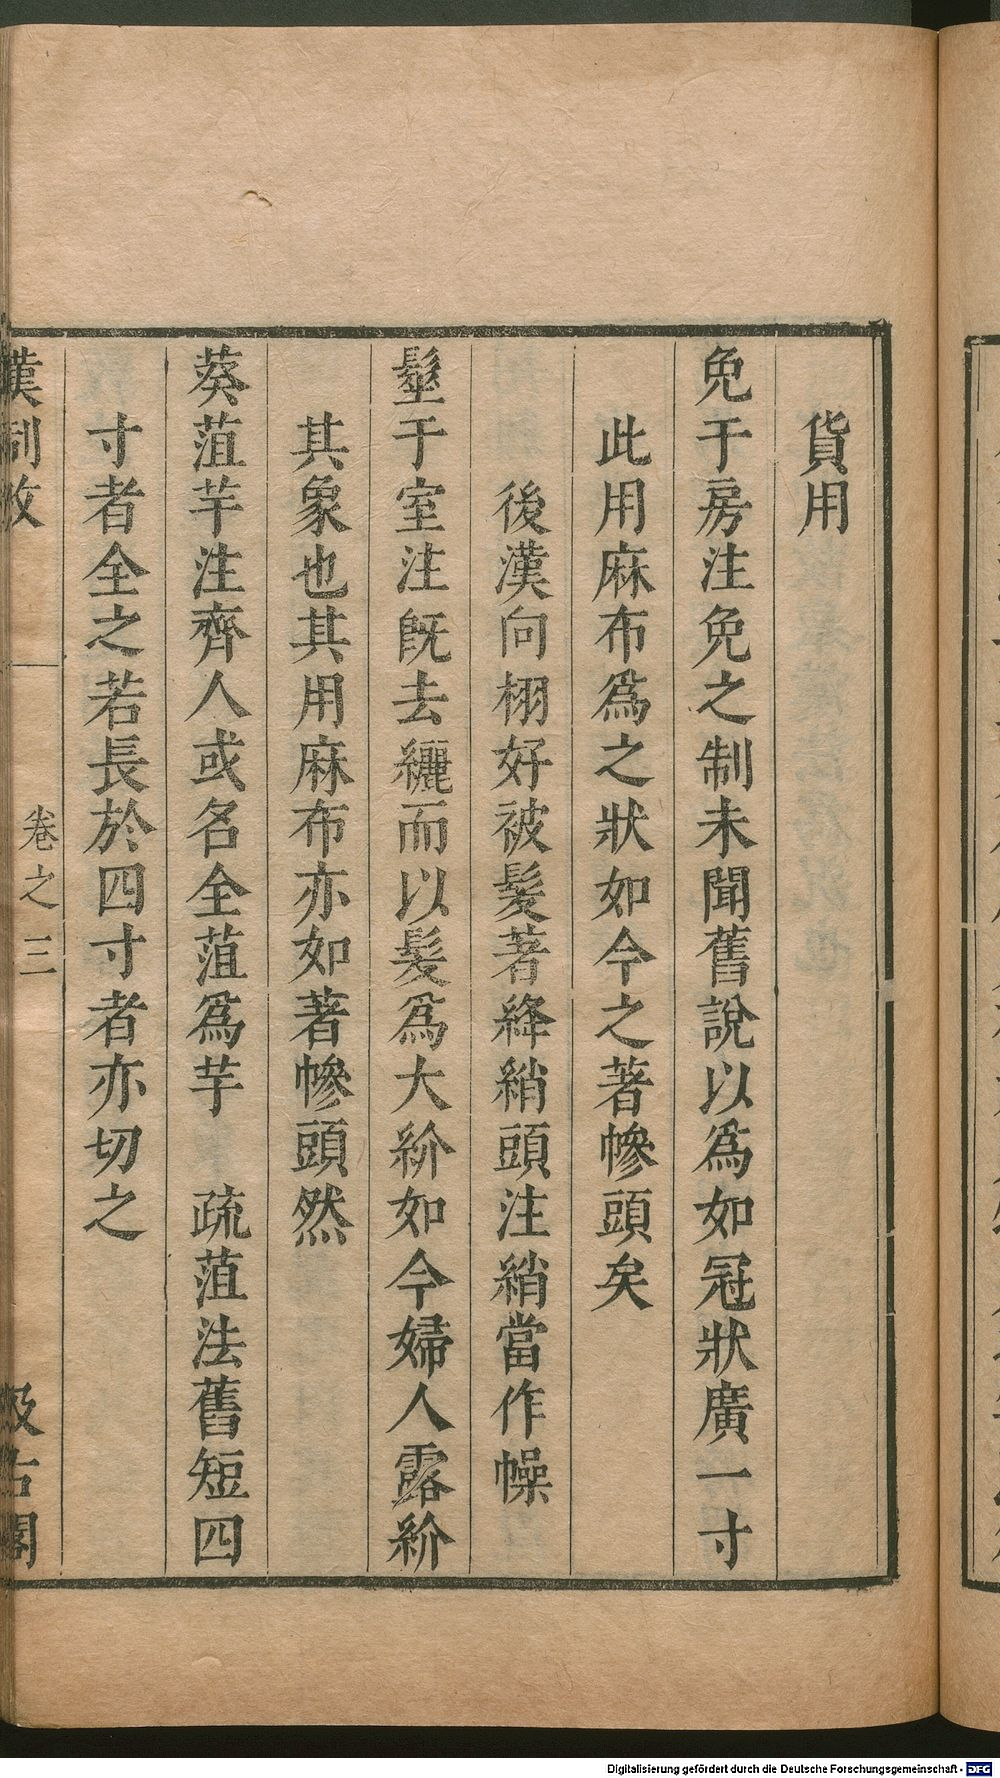 貨用
免于房注免之制未聞舊說以爲如冠狀廣一寸
此用麻布爲之狀如今之著幓頭矣
後漢向栩好被髮著絳綃頭注綃當作幧
髽于室注旣去纚而以髮爲大紒如今婦人露紒
其象也其用麻布亦如著幓頭然
葵菹芋注齊人或名全菹爲芋 疏菹法舊短四
寸者全之若長於四寸者亦切之
漢制攷 卷之三 汲古閣
Digitalisierung gefördert durch die Deutsche Forschungsgemeinschaft - DFG